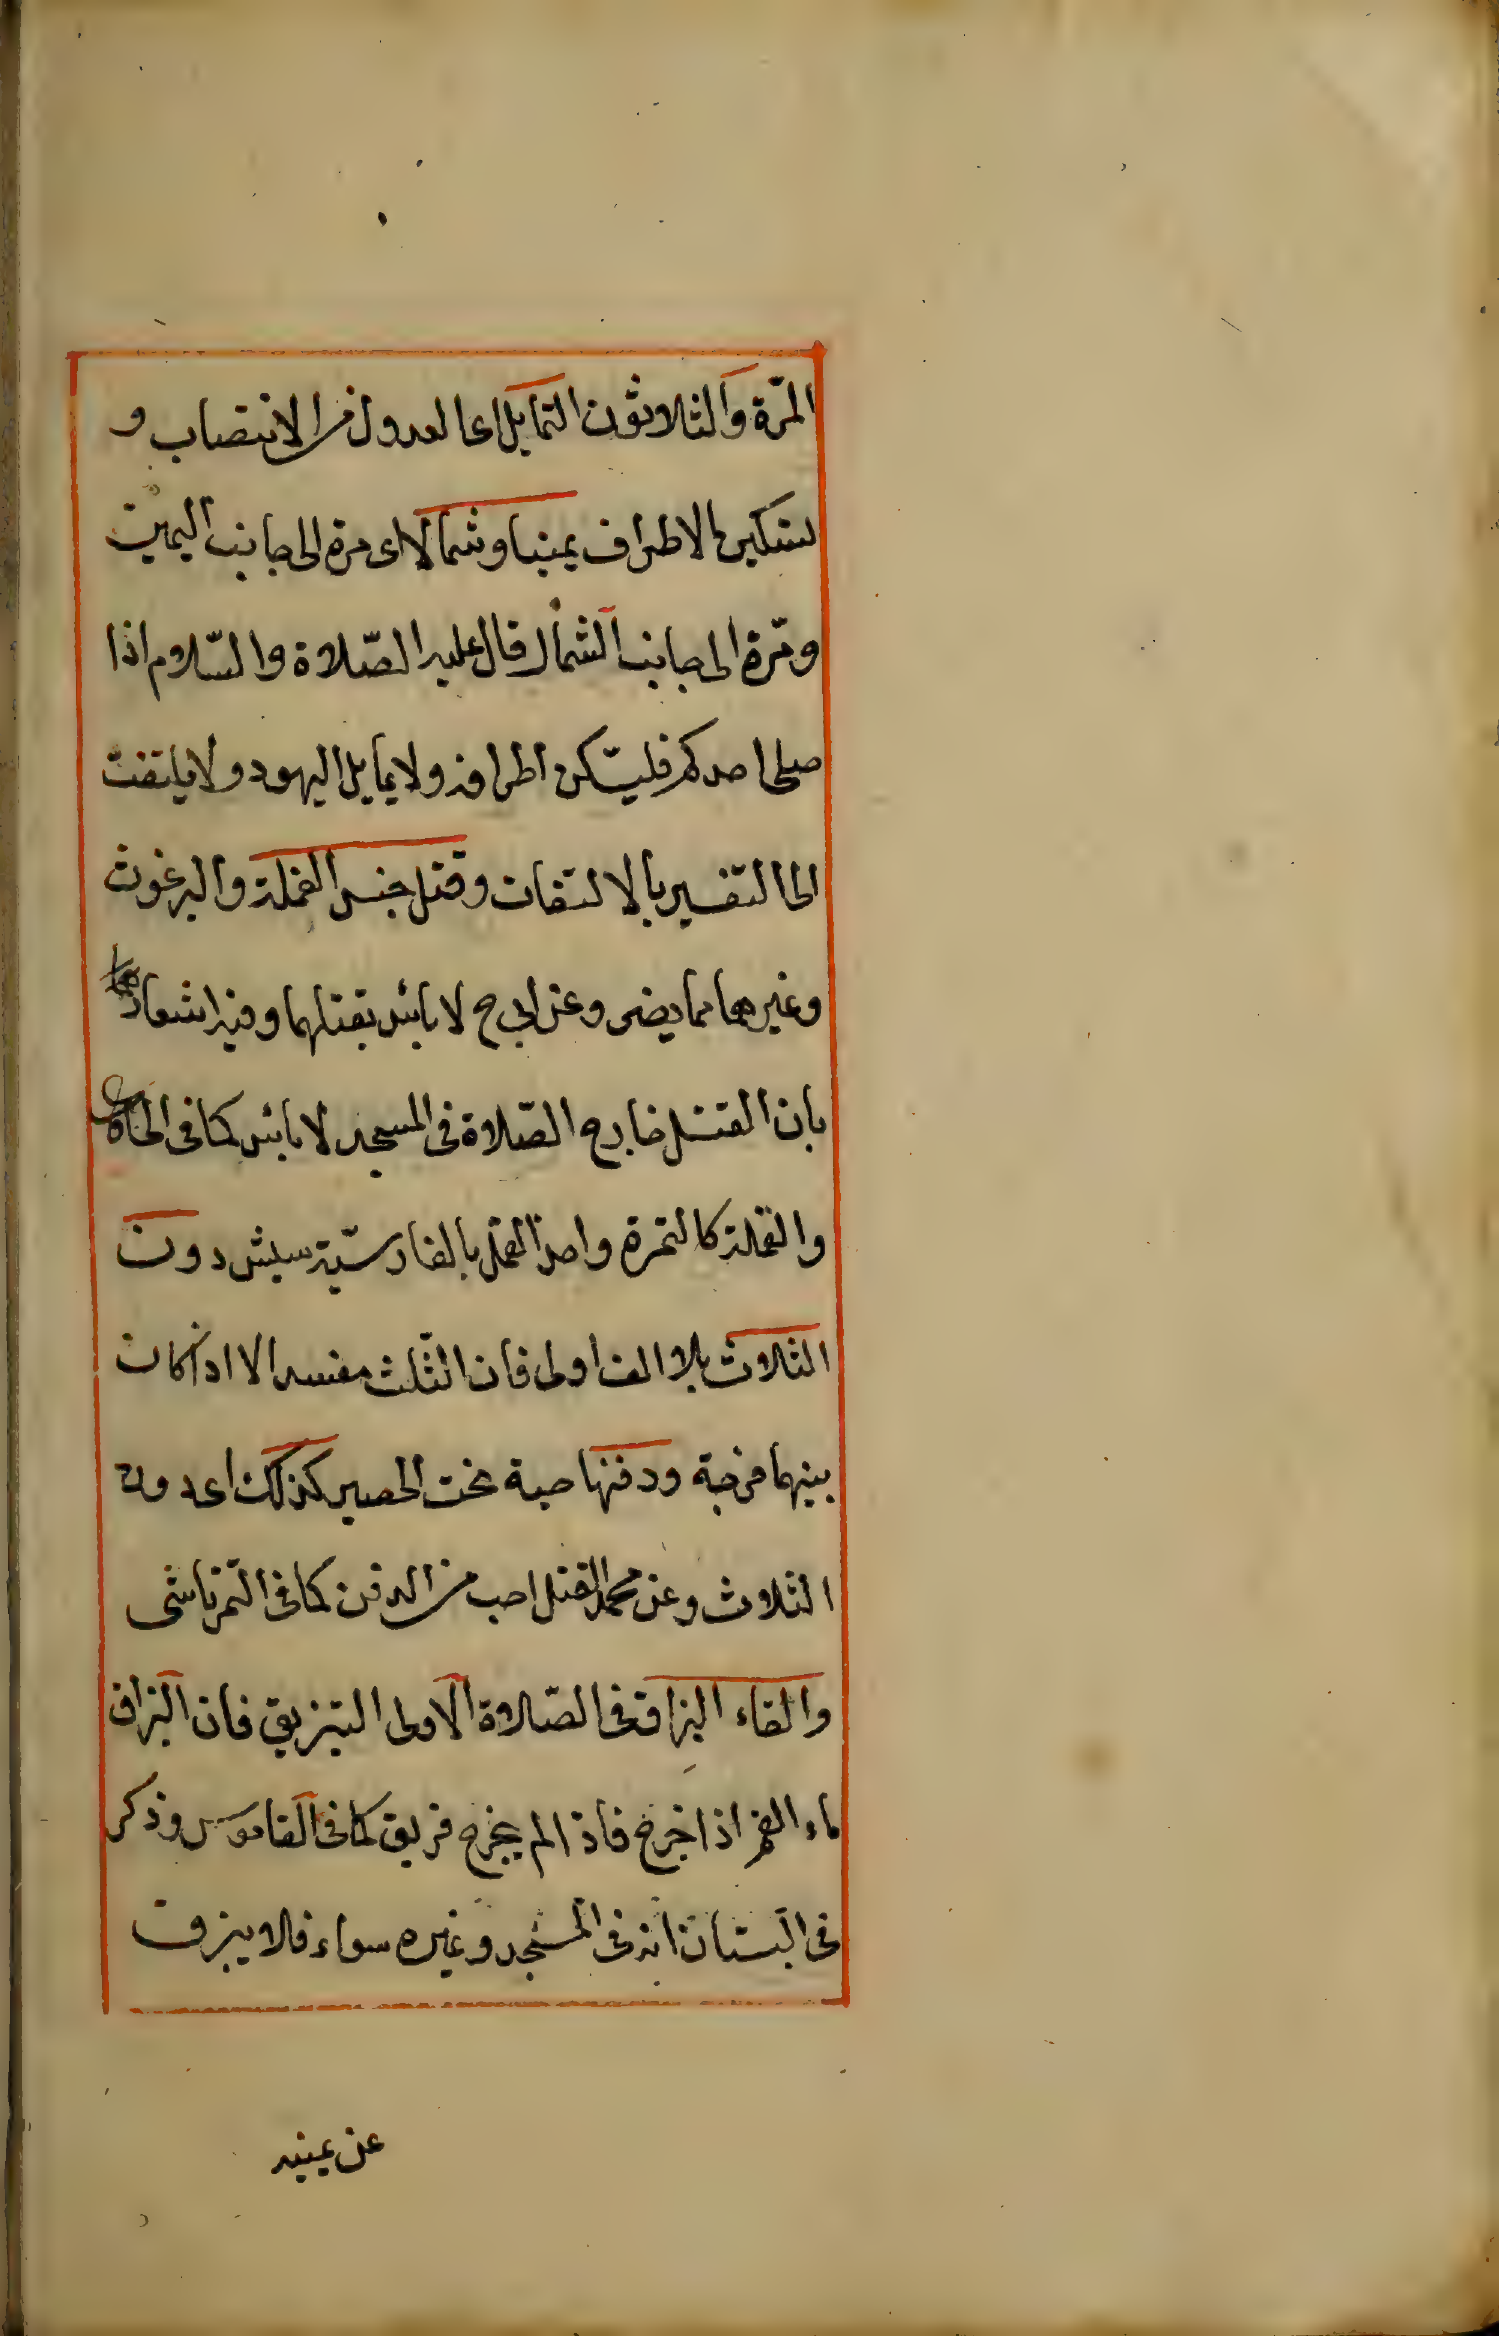 المرّة والثلاثون التمايل اى العدول من الانتصاب و
تسكين الاطراف يمينا وشمالا اى مرة الى جانب اليمين
ومرّة الى جانب الشمال قال عليه الصّلاة والسّلام اذا
صلى احدكم فليسكن اطرافه ولا يمايل اليهود ولا يلتفت
الى التفسير بالالتفات وقتل جنس القملة والبرغوث
وغيرهما مما يضر وعن ابى ح لا بأس بقتلهما وفيه اشعار
بان القتل خارج الصّلاة فى المسجد لا بأس كما فى
والقملة كالتمرة واحد القمل بالفارسيّة سپش دون
الثلاث بلا الف اولى فان الثّلث مفسد الا اذا كان
بينهما فرجة ودفنها حية تحت الحصير كذلك اى دون
الثلاث وعن محمد القتل احب من الدفن كما فى التمرتاشى
والقاء البزاق فى الصّلاة الاولى التبزيق فان البزاق
ماء الفم اذا خرج فاذا لم يخرج فريق كما فى القاموس وذكر
فى البستان انه فى المسجد وغيره سواء فلا يبزق
عن يمينه